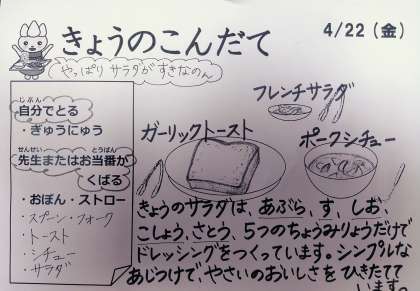 きょうのこんだて
4/22（金）
やっぱり サラダが すきなのん
じぶん
自分でとる
・ぎゅうにゅう
せんせい とうばん
先生またはお当番が
くばる
・おぼん・ストロー
・スプーン・フォーク
・トースト
・シチュー
・サラダ
フレンチサラダ
ガーリックトースト
ポークシチュー
きょうのサラダは、あぶら、す、しお、
こしょう、さとう、5つのちょうみりょうだけで
ドレッシングをつくっています。シンプルな
あじつけで やさいのおいしさを ひきたてて
います。